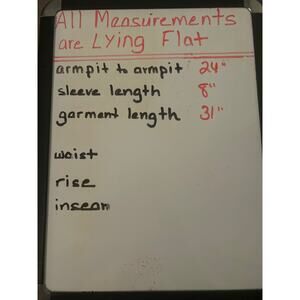 All Measurements
are Lying Flat
armpit to armpit 24"
sleeve length 8"
garment length 31"
waist
rise
inseam